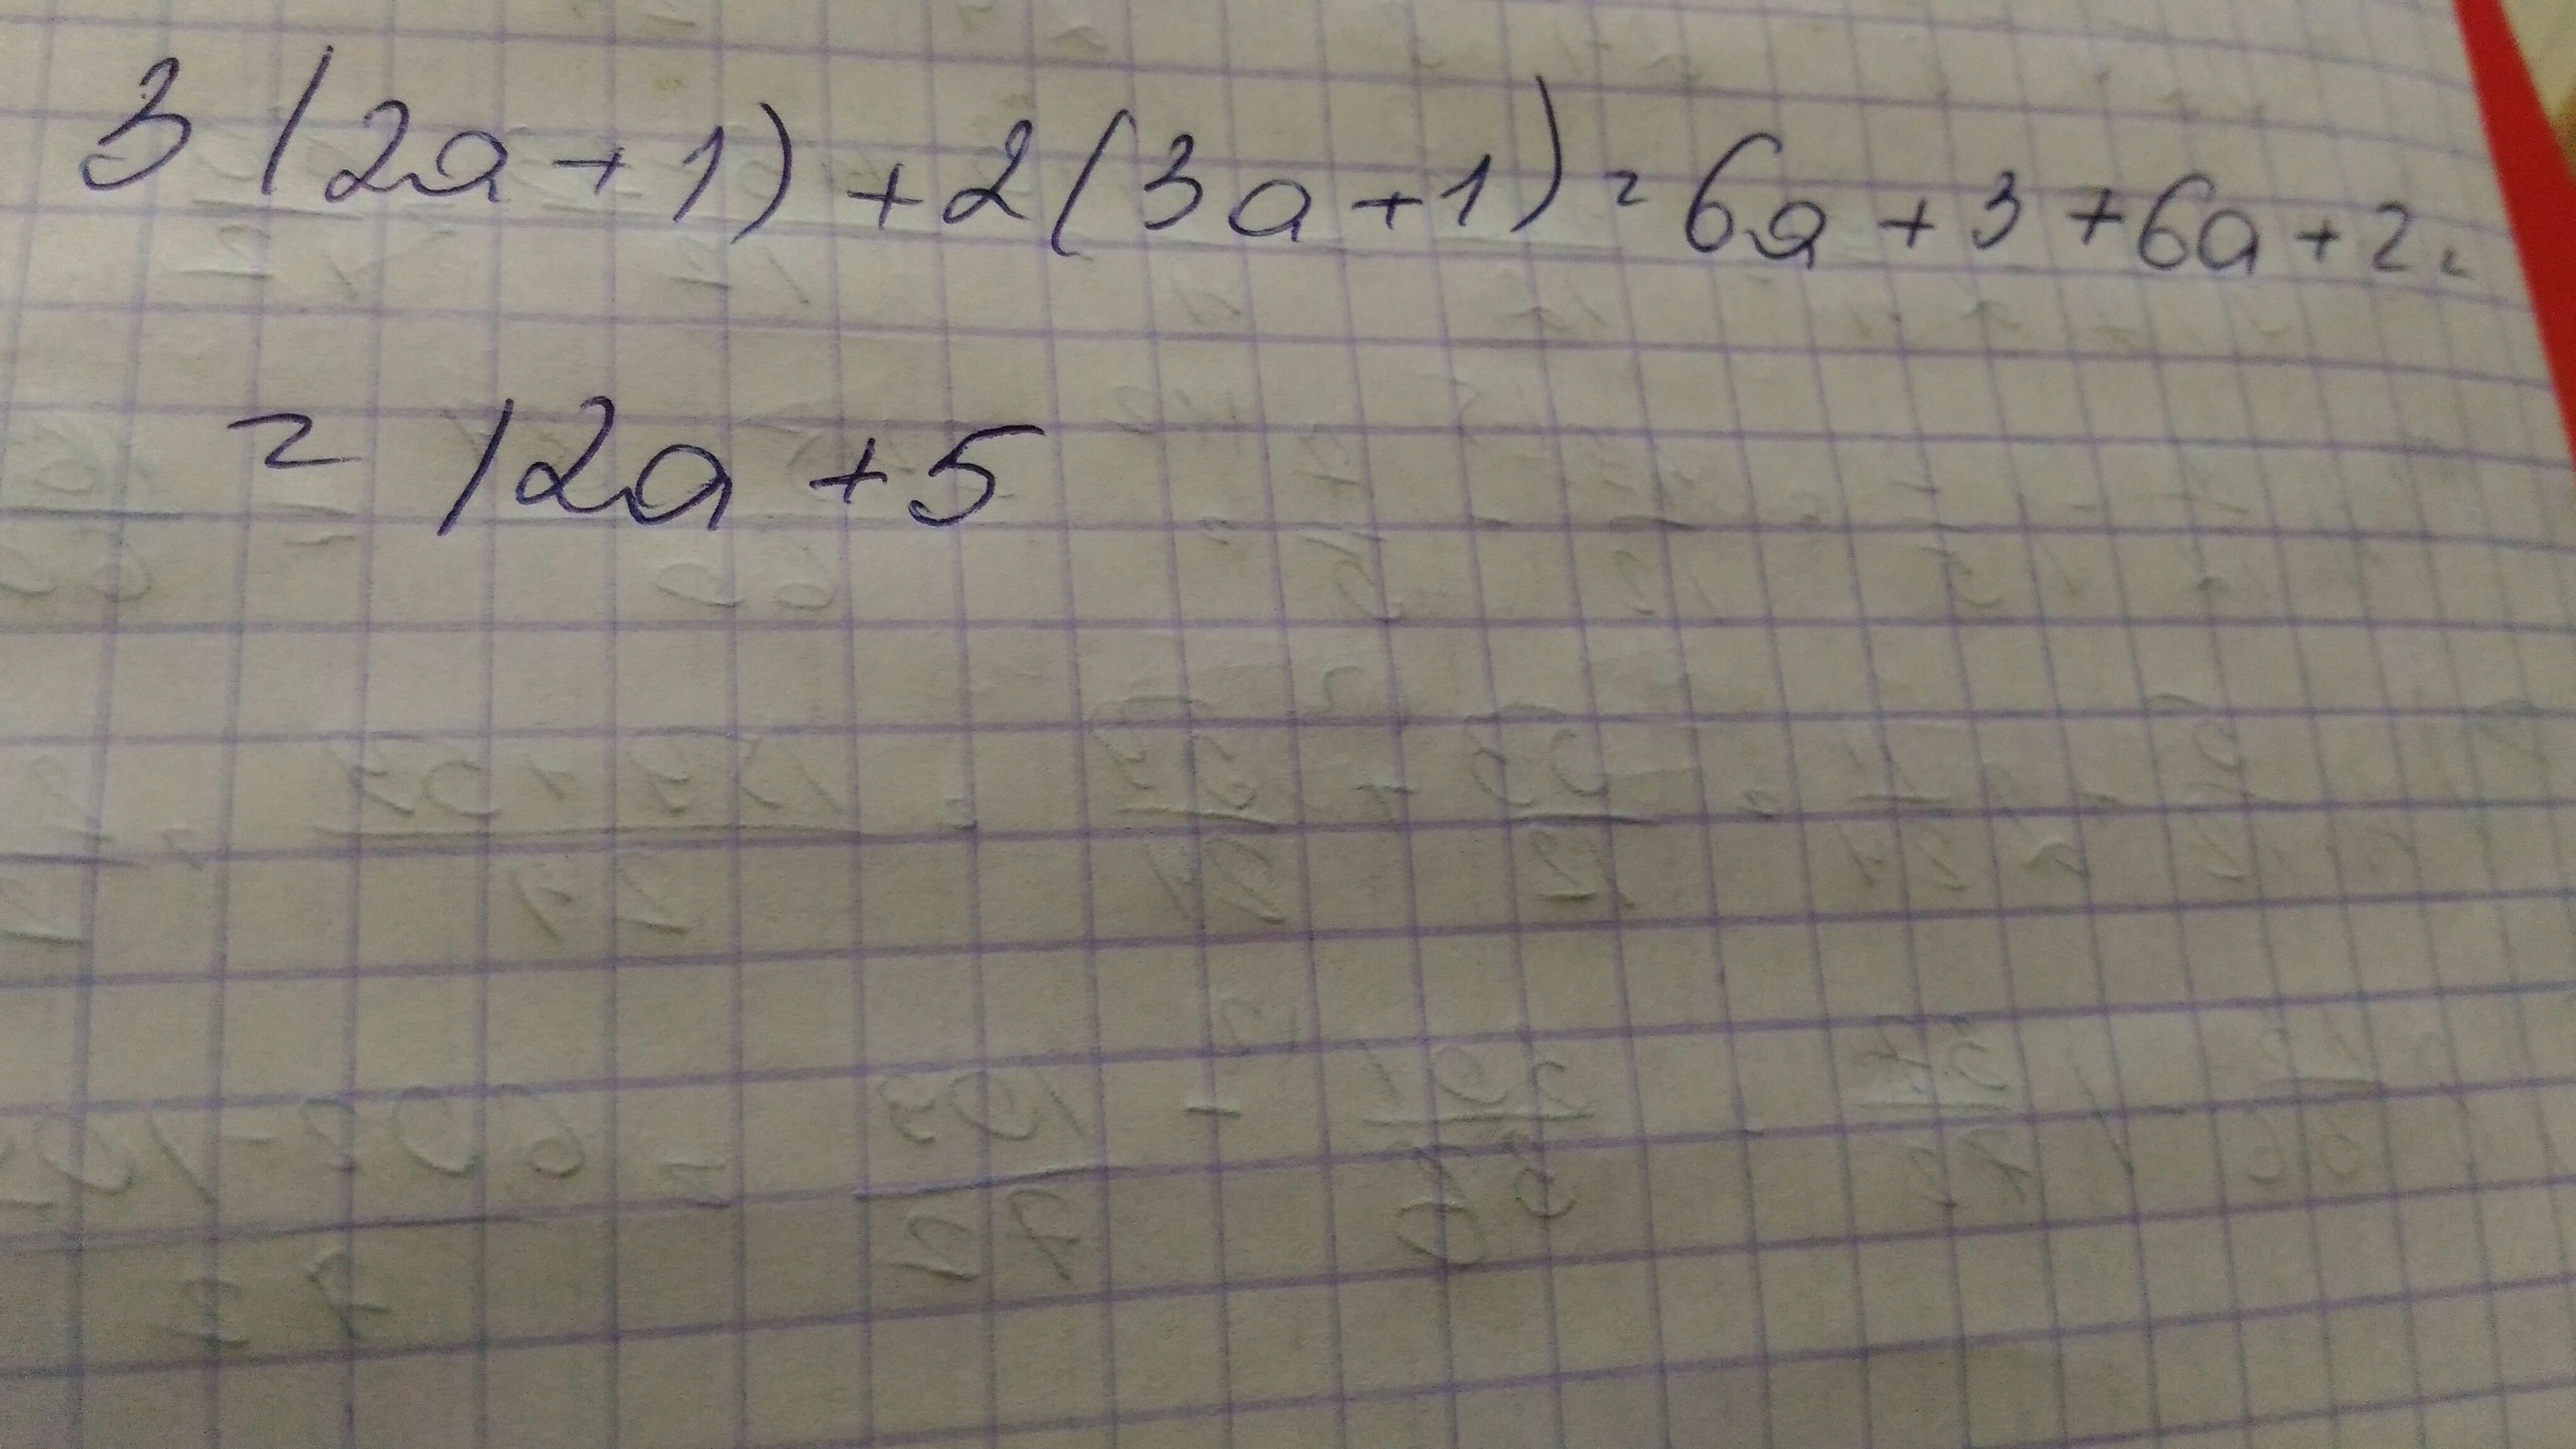 3(2a+1)+2(3a+1)=6a+3+6a+2=
=12a+5